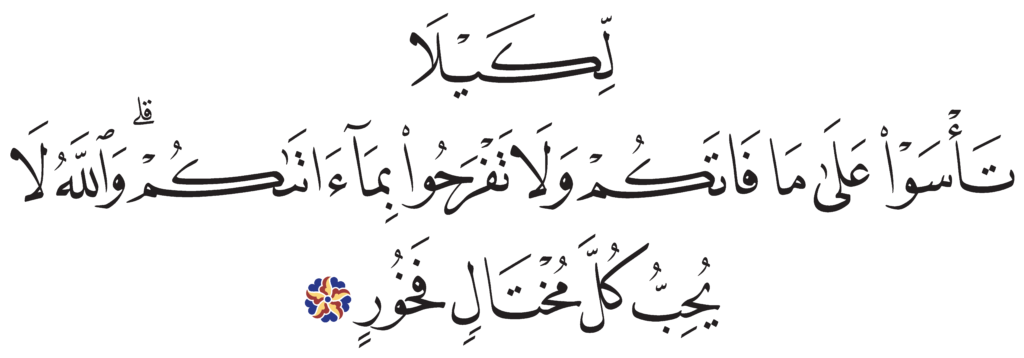 لِّكَيْلَا
تَأْسَوْا۟ عَلَىٰ مَا فَاتَكُمْ وَلَا تَفْرَحُوا۟ بِمَآ ءَاتَىٰكُمْ ۗ وَٱللَّهُ لَا
يُحِبُّ كُلَّ مُخْتَالٍ فَخُورٍ